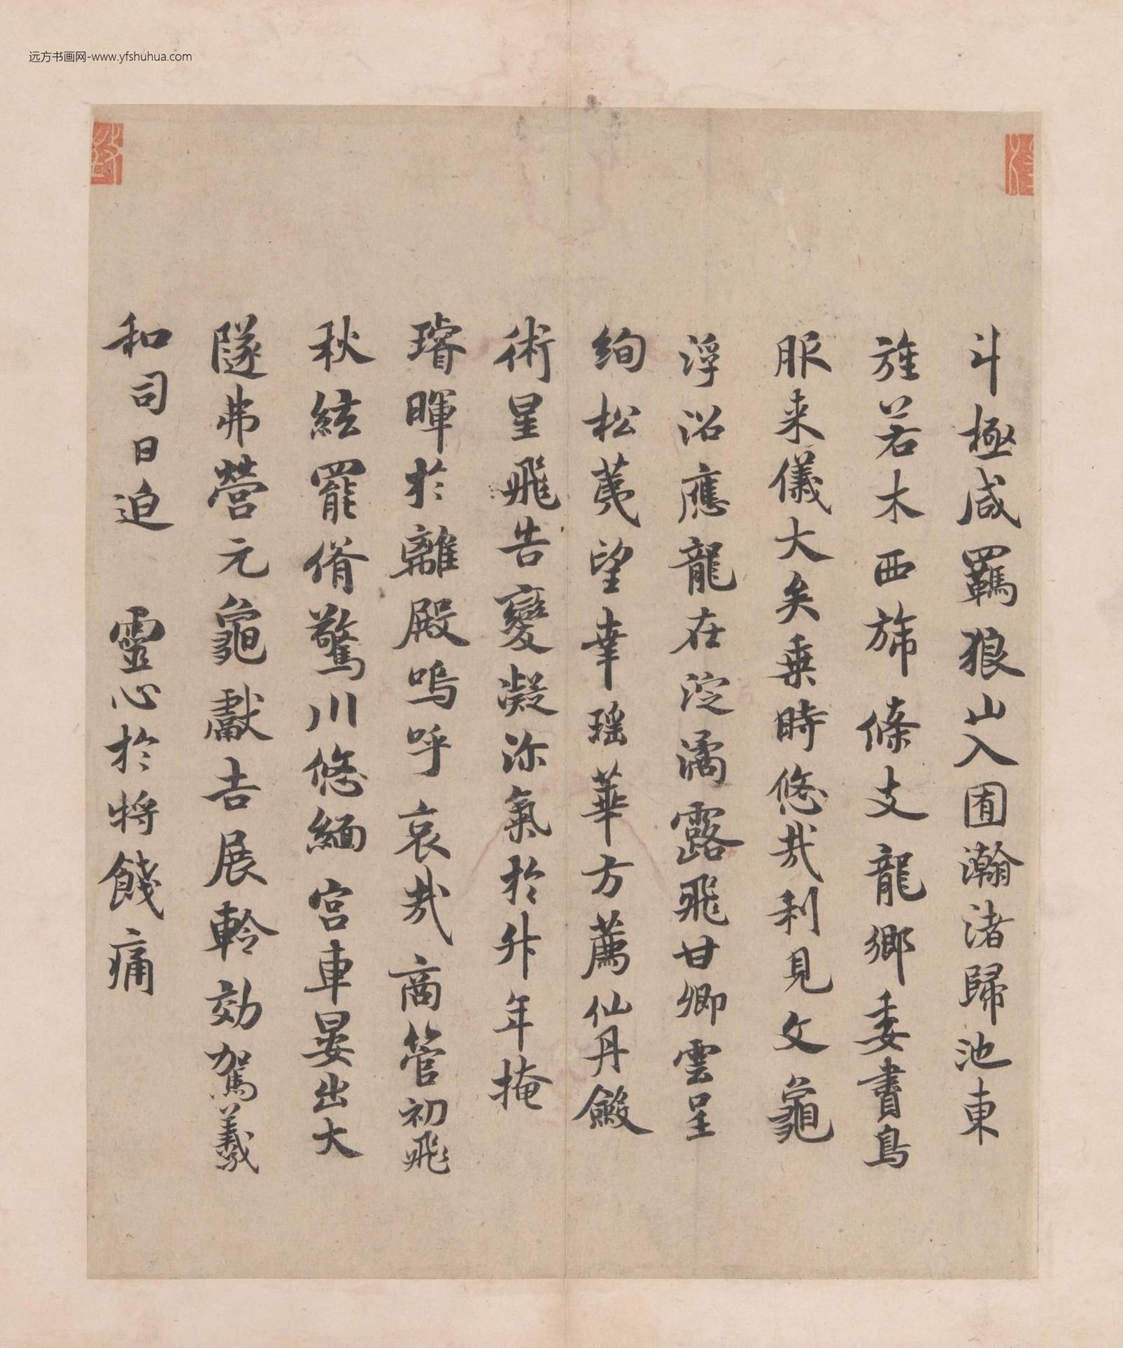 远方书画网-www.yfshuhua.com
斗極咸羈狼山入囿瀚渚歸池東
旌若木西旆條支龍鄉委書鳥
服来儀大矣乗時悠哉利見文龜
浮沼應龍在淀潏露飛甘卿雲呈
絢松荑望幸瑶華方薦仙丹斂
術星飛告變凝沴氣於升年掩
璿暉於離殿嗚呼哀哉商管初飛
秋紘罷脩驚川悠緬宮車晏出大
隧弗營元龜獻吉展軨効駕羲
和司日迫靈心於將餞痛